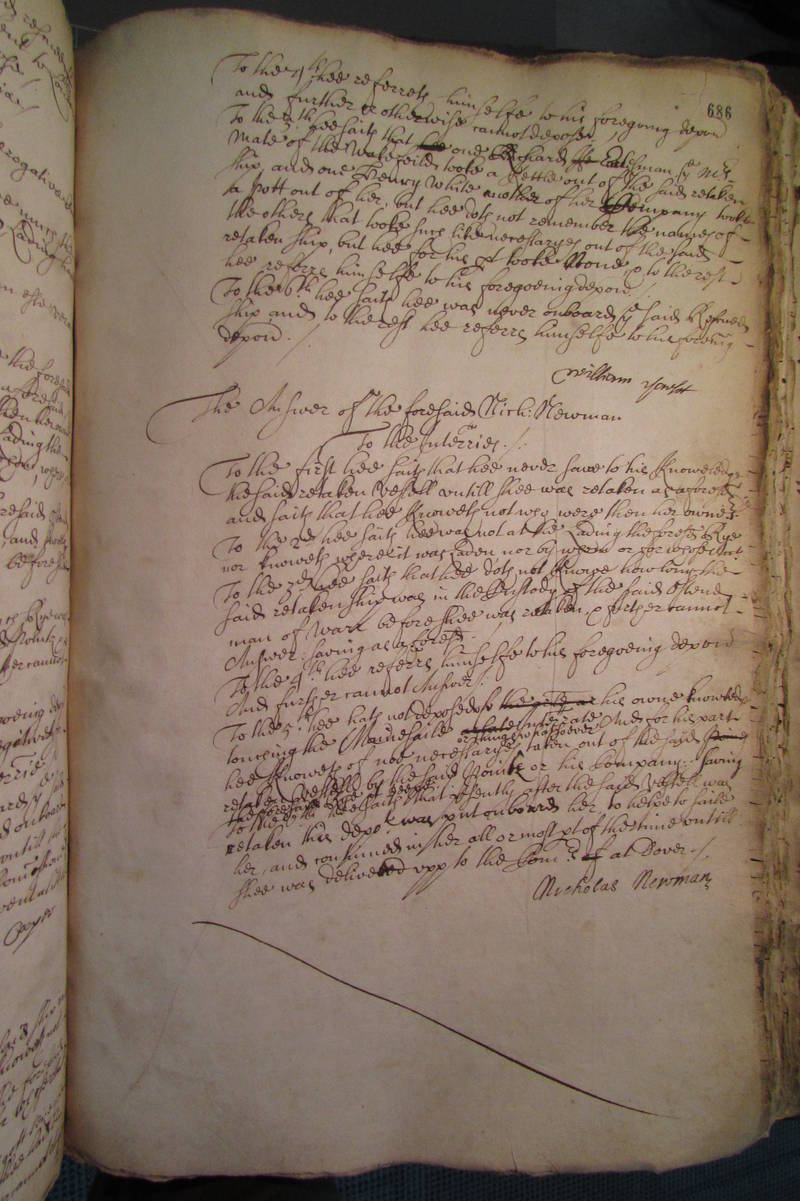 686
To the 4th hee referrs himselfe to his foregoeing depon
and further or otherwise cannot depose,
To the 5th hee saith that one Richard man ye Mrs
Mate of the Wakefeild tooke a kettle out of the said retaken
ship, and one Henry White another of her Company tooke
a pott out of her, but hee doth not remember the names of
the others that tooke such like necessaryes out of the said
retaken ship, but hee for his pt tooke None, & to the rest
hee referrs himselfe to his foregoeing depon.
To the 6th hee saith hee was never onboard ye said
ship and to the rest hee referrs himselfe to his foregoeing
depon.
William
The Answer of the foresaid Nich: Newman
To the Interries.
To the first hee saith that hee never sawe to his knowledge
the said retaken vessell untill shee was retaken as aforesd
and saith that hee knoweth not who were then her owners
To the 2d hee saith hee was not at the Lading the foresd Rye
nor knoweth where it was laden nor by whom or for whose Accot
To the 3d hee saith that hee doth not knowe how long the
said retaken ship was in the Custody of the said Ostend
man of warr before shee was retaken & further cannot
Answer: saving as aforesd.
To the 4th hee referrs himselfe to his foregoeing depon
And further cannot Answer.
To the 5th hee hath not deposed of his owne knowledge
touching the Maine saile Interrate And for his part
hee knoweth of noe necessaryes or things whatsoever taken out of the said
retaken vessell by the said or his Company: saving
the foresaid
To the 6th hee saith that presently after the said Vessell was
retaken this depot was put onboard her, to helpe to saile
her, and continued in her all or most pt of the time untill
shee was delivered upp to the Comrs at Dover.
Nicholas Newman